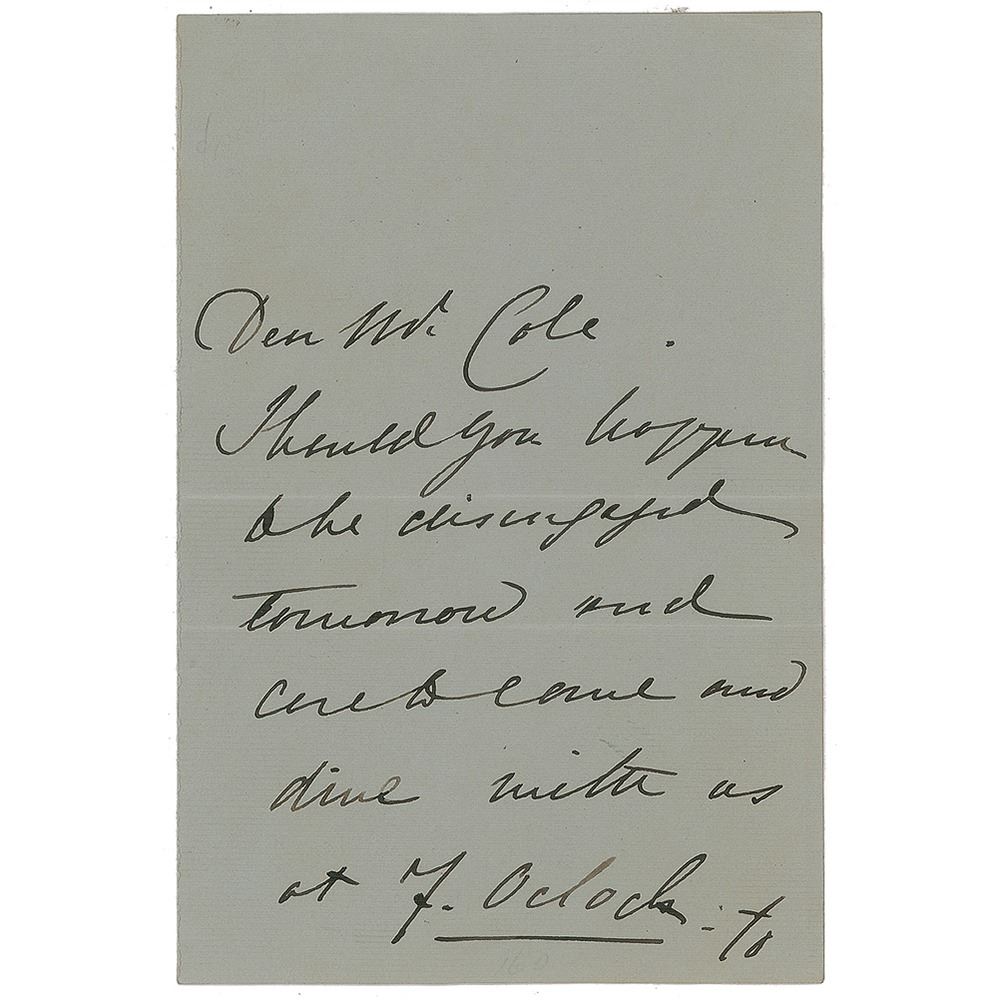 Dear Mr. Cole.
Should you happen
to be disengaged
tomorrow and
care to come and
dine with us
at 7. Oclock. to